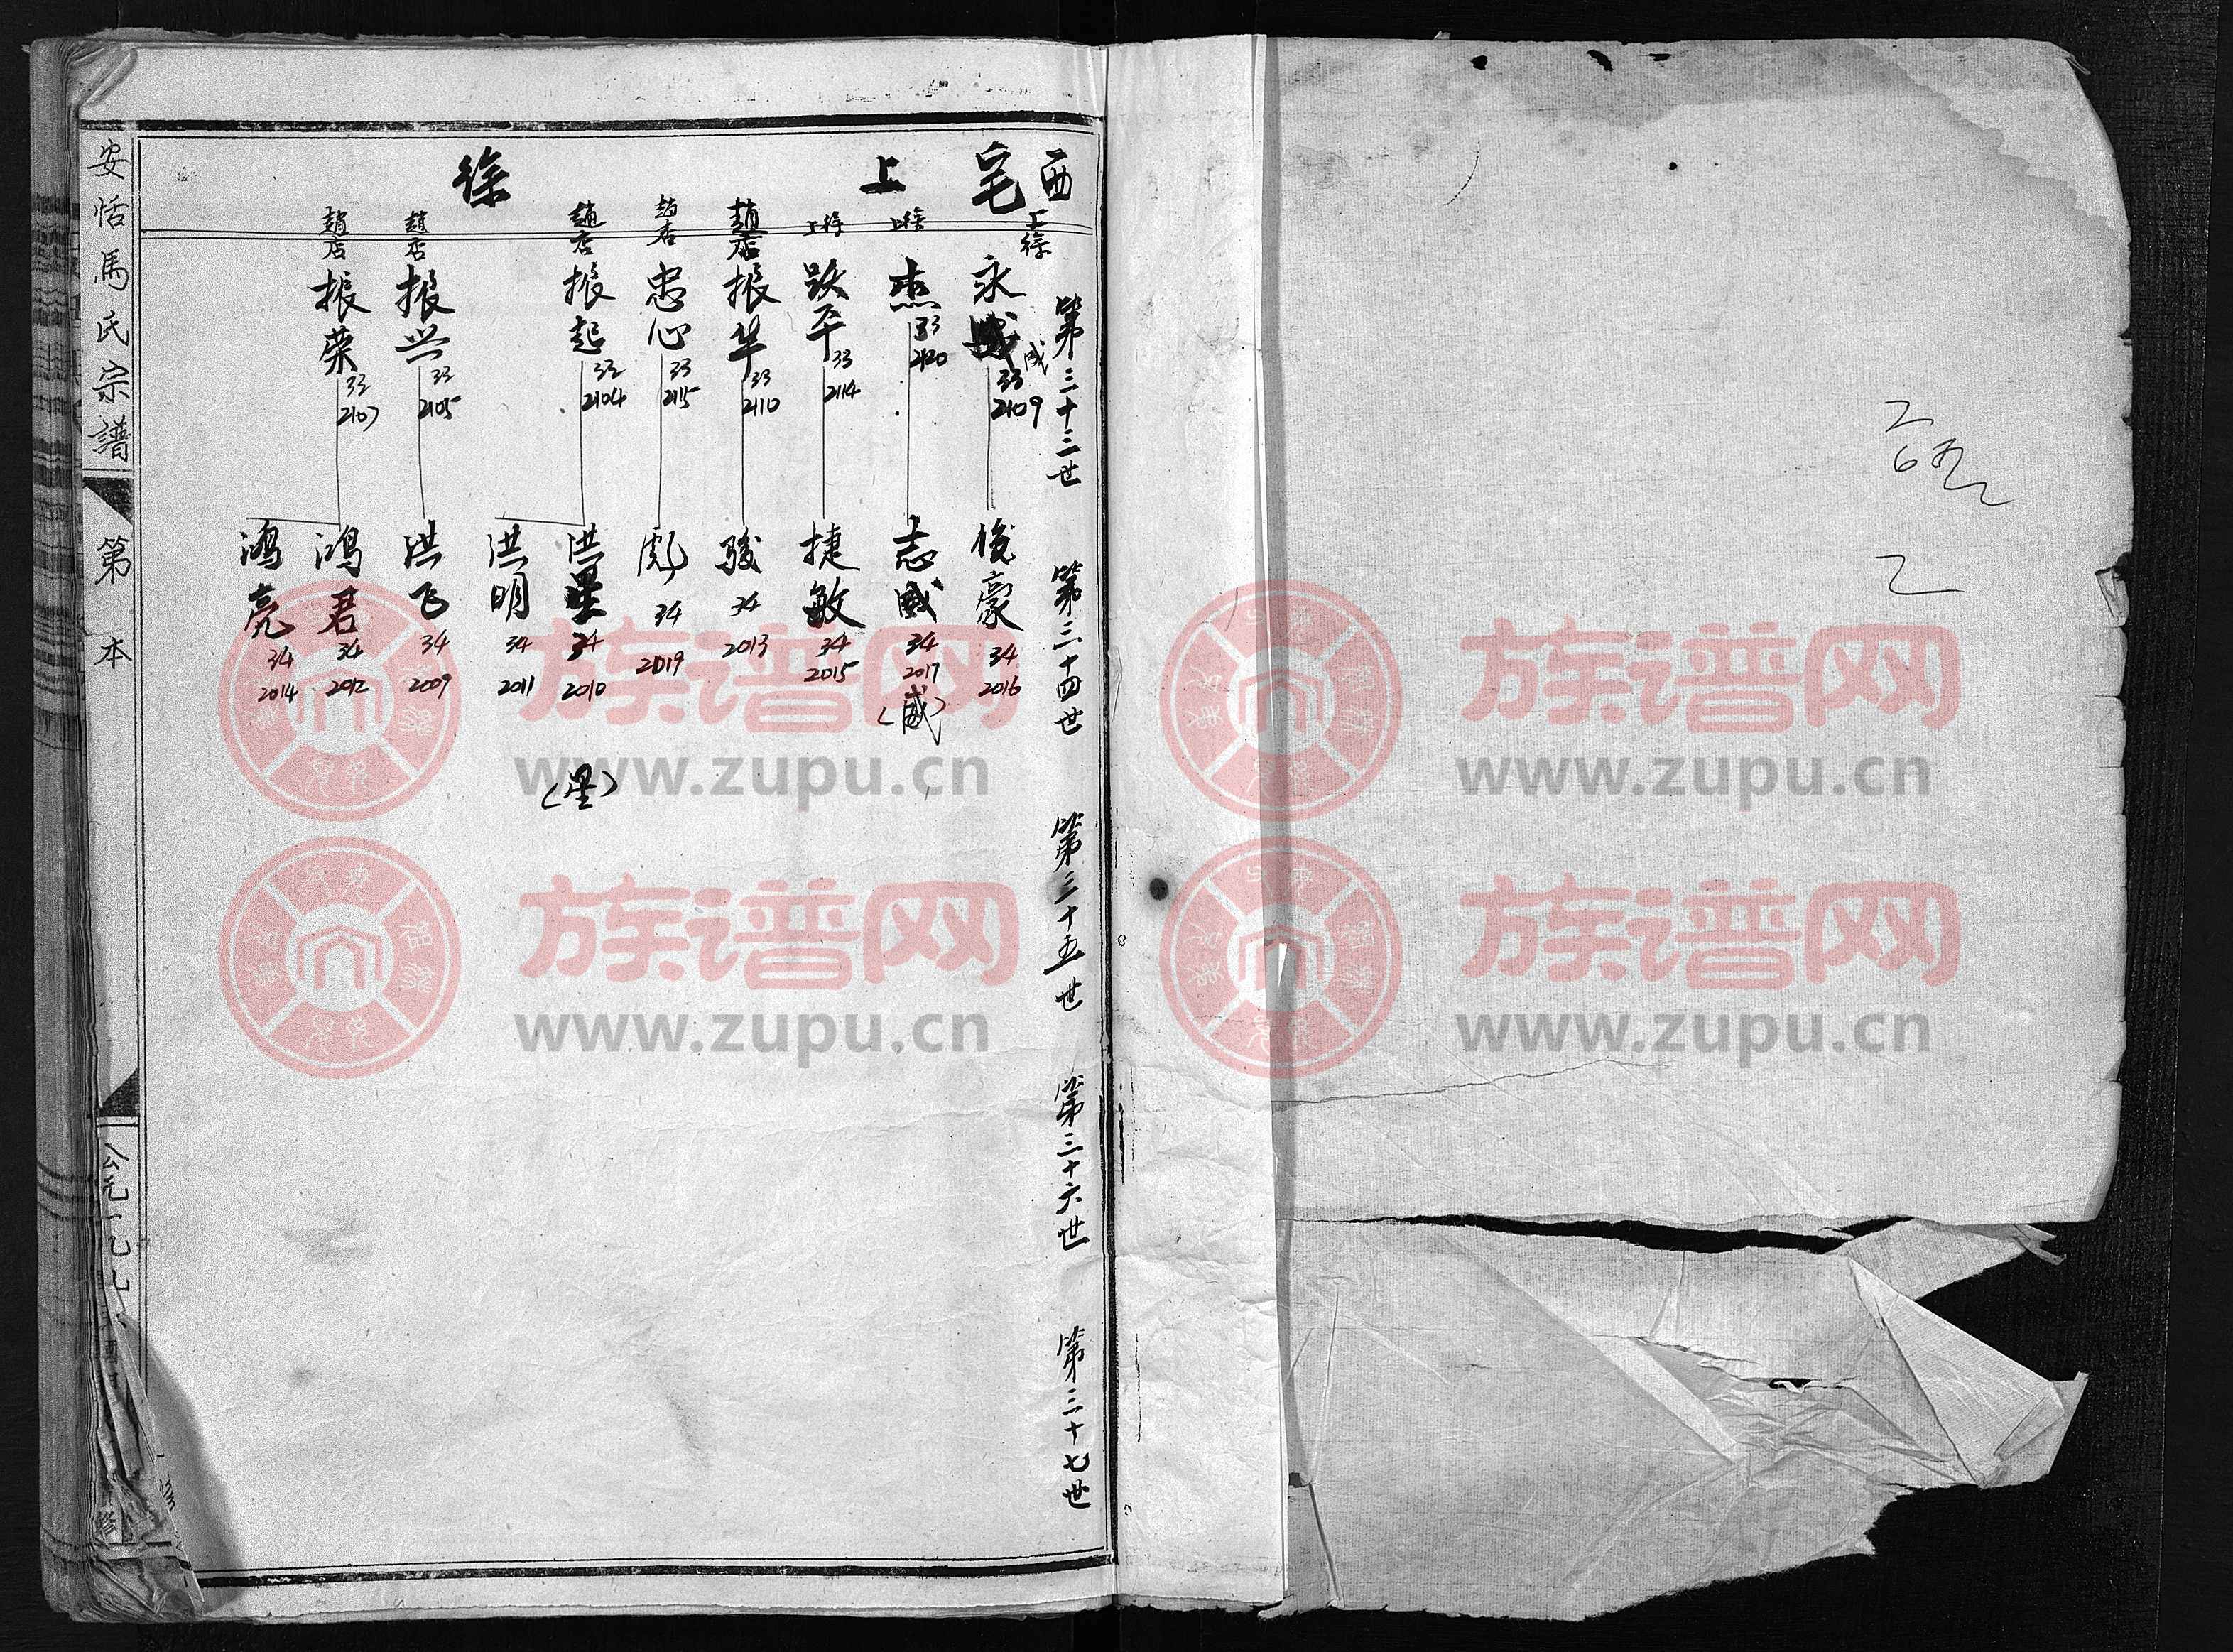 西宅上徐
第三十三世
第三十四世
第三十五世
第三十六世
第三十七世
上徐
永
成
33
2109
俊豪
34
2016
上徐
杰
33
2120
志威
34
2017
(威)
上徐
跃平
33
2114
捷敏
34
2015
趙店
振华
33
2110
骏
34
2013
趙店
忠心
33
2115
彪
34
2019
趙店
振起
33
2104
洪星
34
2010
(星)
洪明
34
2011
趙店
振兴
33
2105
洪飞
34
2009
趙店
振荣
33
2107
鸿君
34
2012
鸿亮
34
2014
安恬馬氏宗譜
第 本
公元一九七
修
族谱网
www.zupu.cn
族谱网
www.zupu.cn
族谱网
www.zupu.cn
族谱网
www.zupu.cn